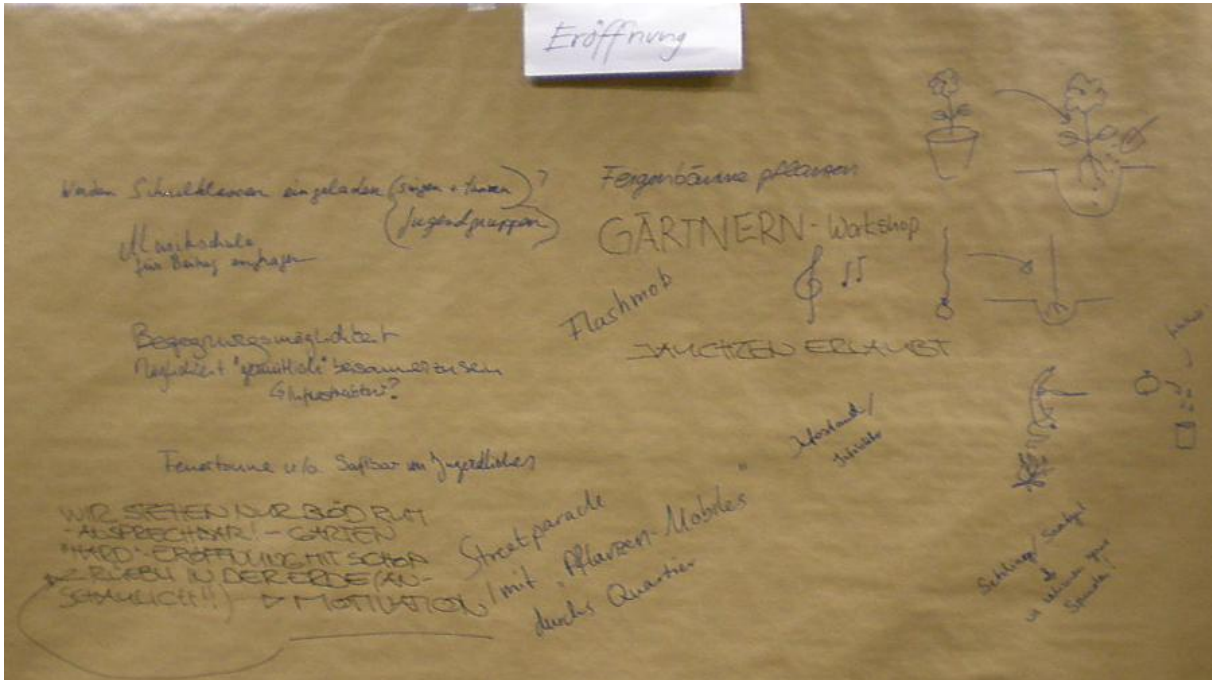 Eröffnung
Werden Schulklassen eingeladen (singen + tanzen)?
(Jugendgruppen)
Musikschule
für Beitrag anfragen
Begegnungsmöglichkeit
Möglichkeit "gemütlich" beisammen zu sein
Feuertonne u/o Saftbar von Jugendlichen
WIR STEHEN NUR BLÖD RUM
ANSPRECHBAR! - GARTEN
"HARD"-ERÖFFNUNG MIT SCHON
IN DER ERDE (AN-
SCHAULICH!!) → MOTIVATION
Feigenbäume pflanzen
GÄRTNERN - Workshop
Flashmob
JAUCHZEN ERLAUBT
Infostand /
Streetparade
/ mit "Pflanzen-Mobiles"
durchs Quartier